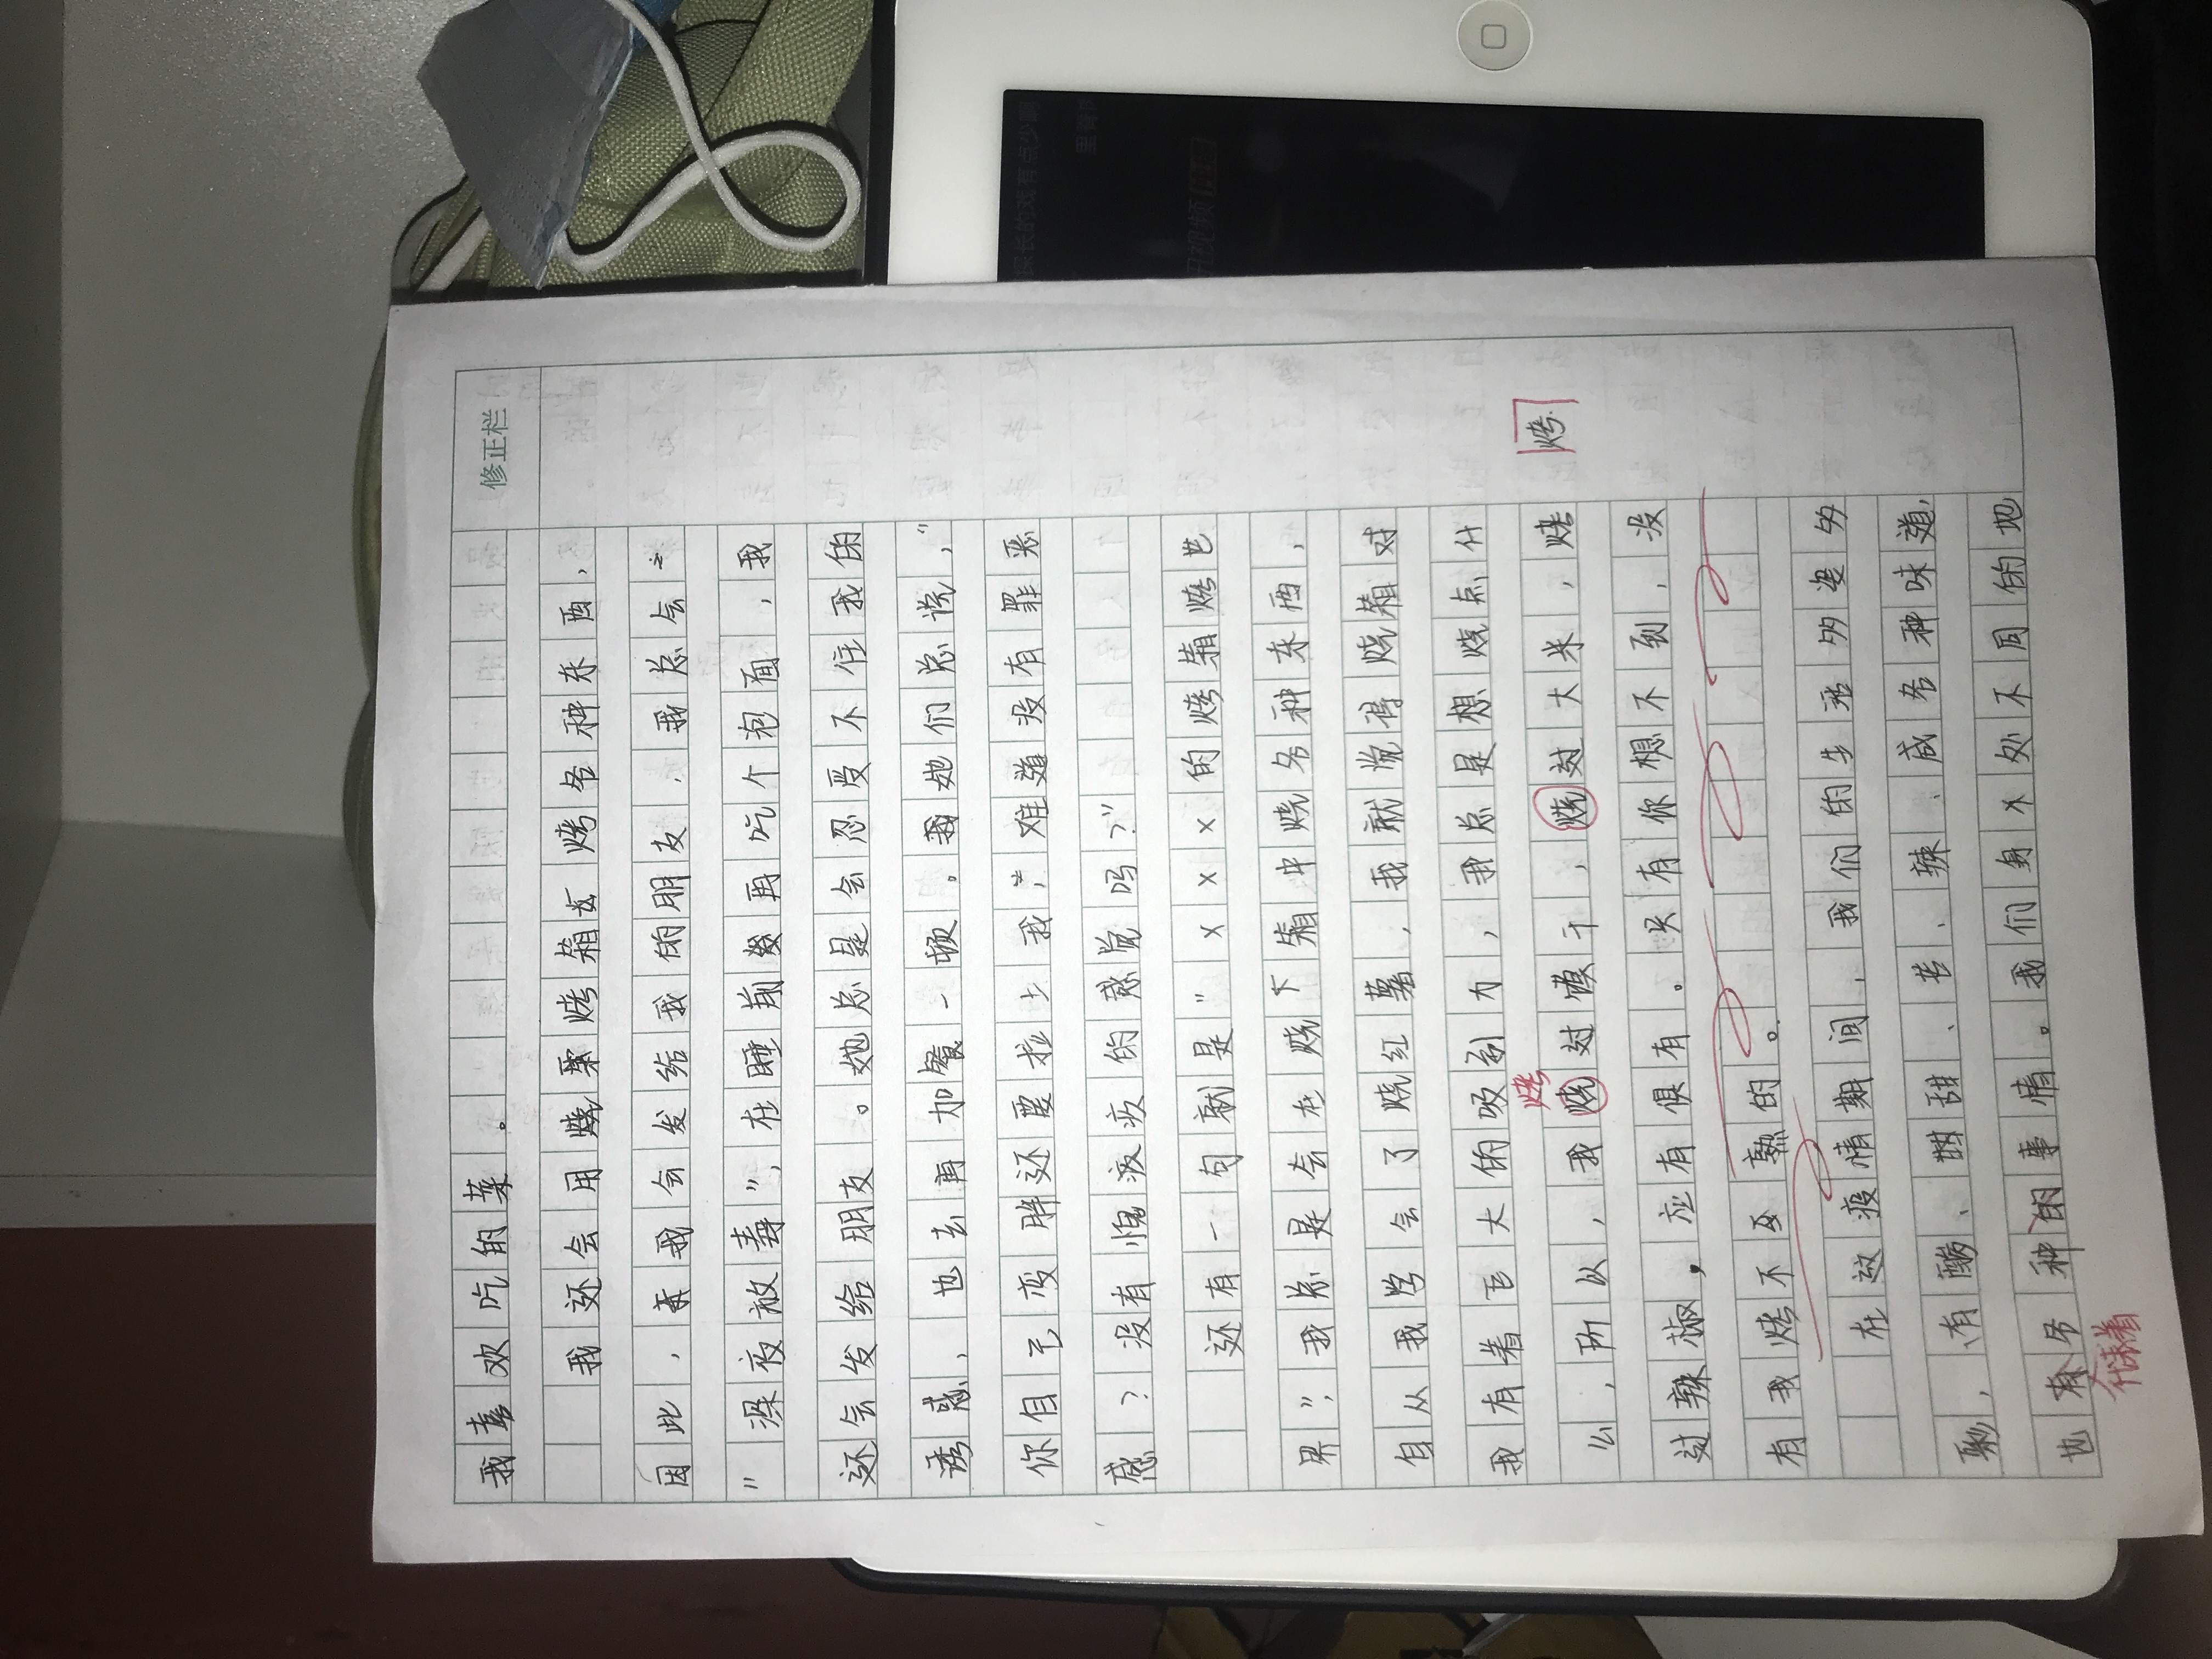 修正栏
我喜欢吃的菜。
我还会用烧来烤箱去烤各种东西，
因此，我会发给我的朋友，我总会
"深夜放毒"，在睡前要再吃个泡面，我
还会发给朋友。她总是会忍受不住我的
诱惑，也去再加餐一顿。我她们总说，"
你自己变胖还要拉上我，难道没有罪恶
感？没有愧疚的感觉吗？"
还有一句就是"×××的烤箱烤芒
果"，我总是会在烧下箱中烧各种东西，
自从我学会了烧红薯，我就觉得烧箱对
我有着巨大的吸引力，我总是想烧点什
么，所以，我烧过馍干，烧过大米，烤
烤
烤
过辣椒，应有俱有。只有你想不到，没
有我烤不熟的。
在这疫情期间，我们的生活多姿多
彩，有酸、甜、苦、辣、咸各种味道，
也有另种的事情。我们身处不同的地
代表着
视频